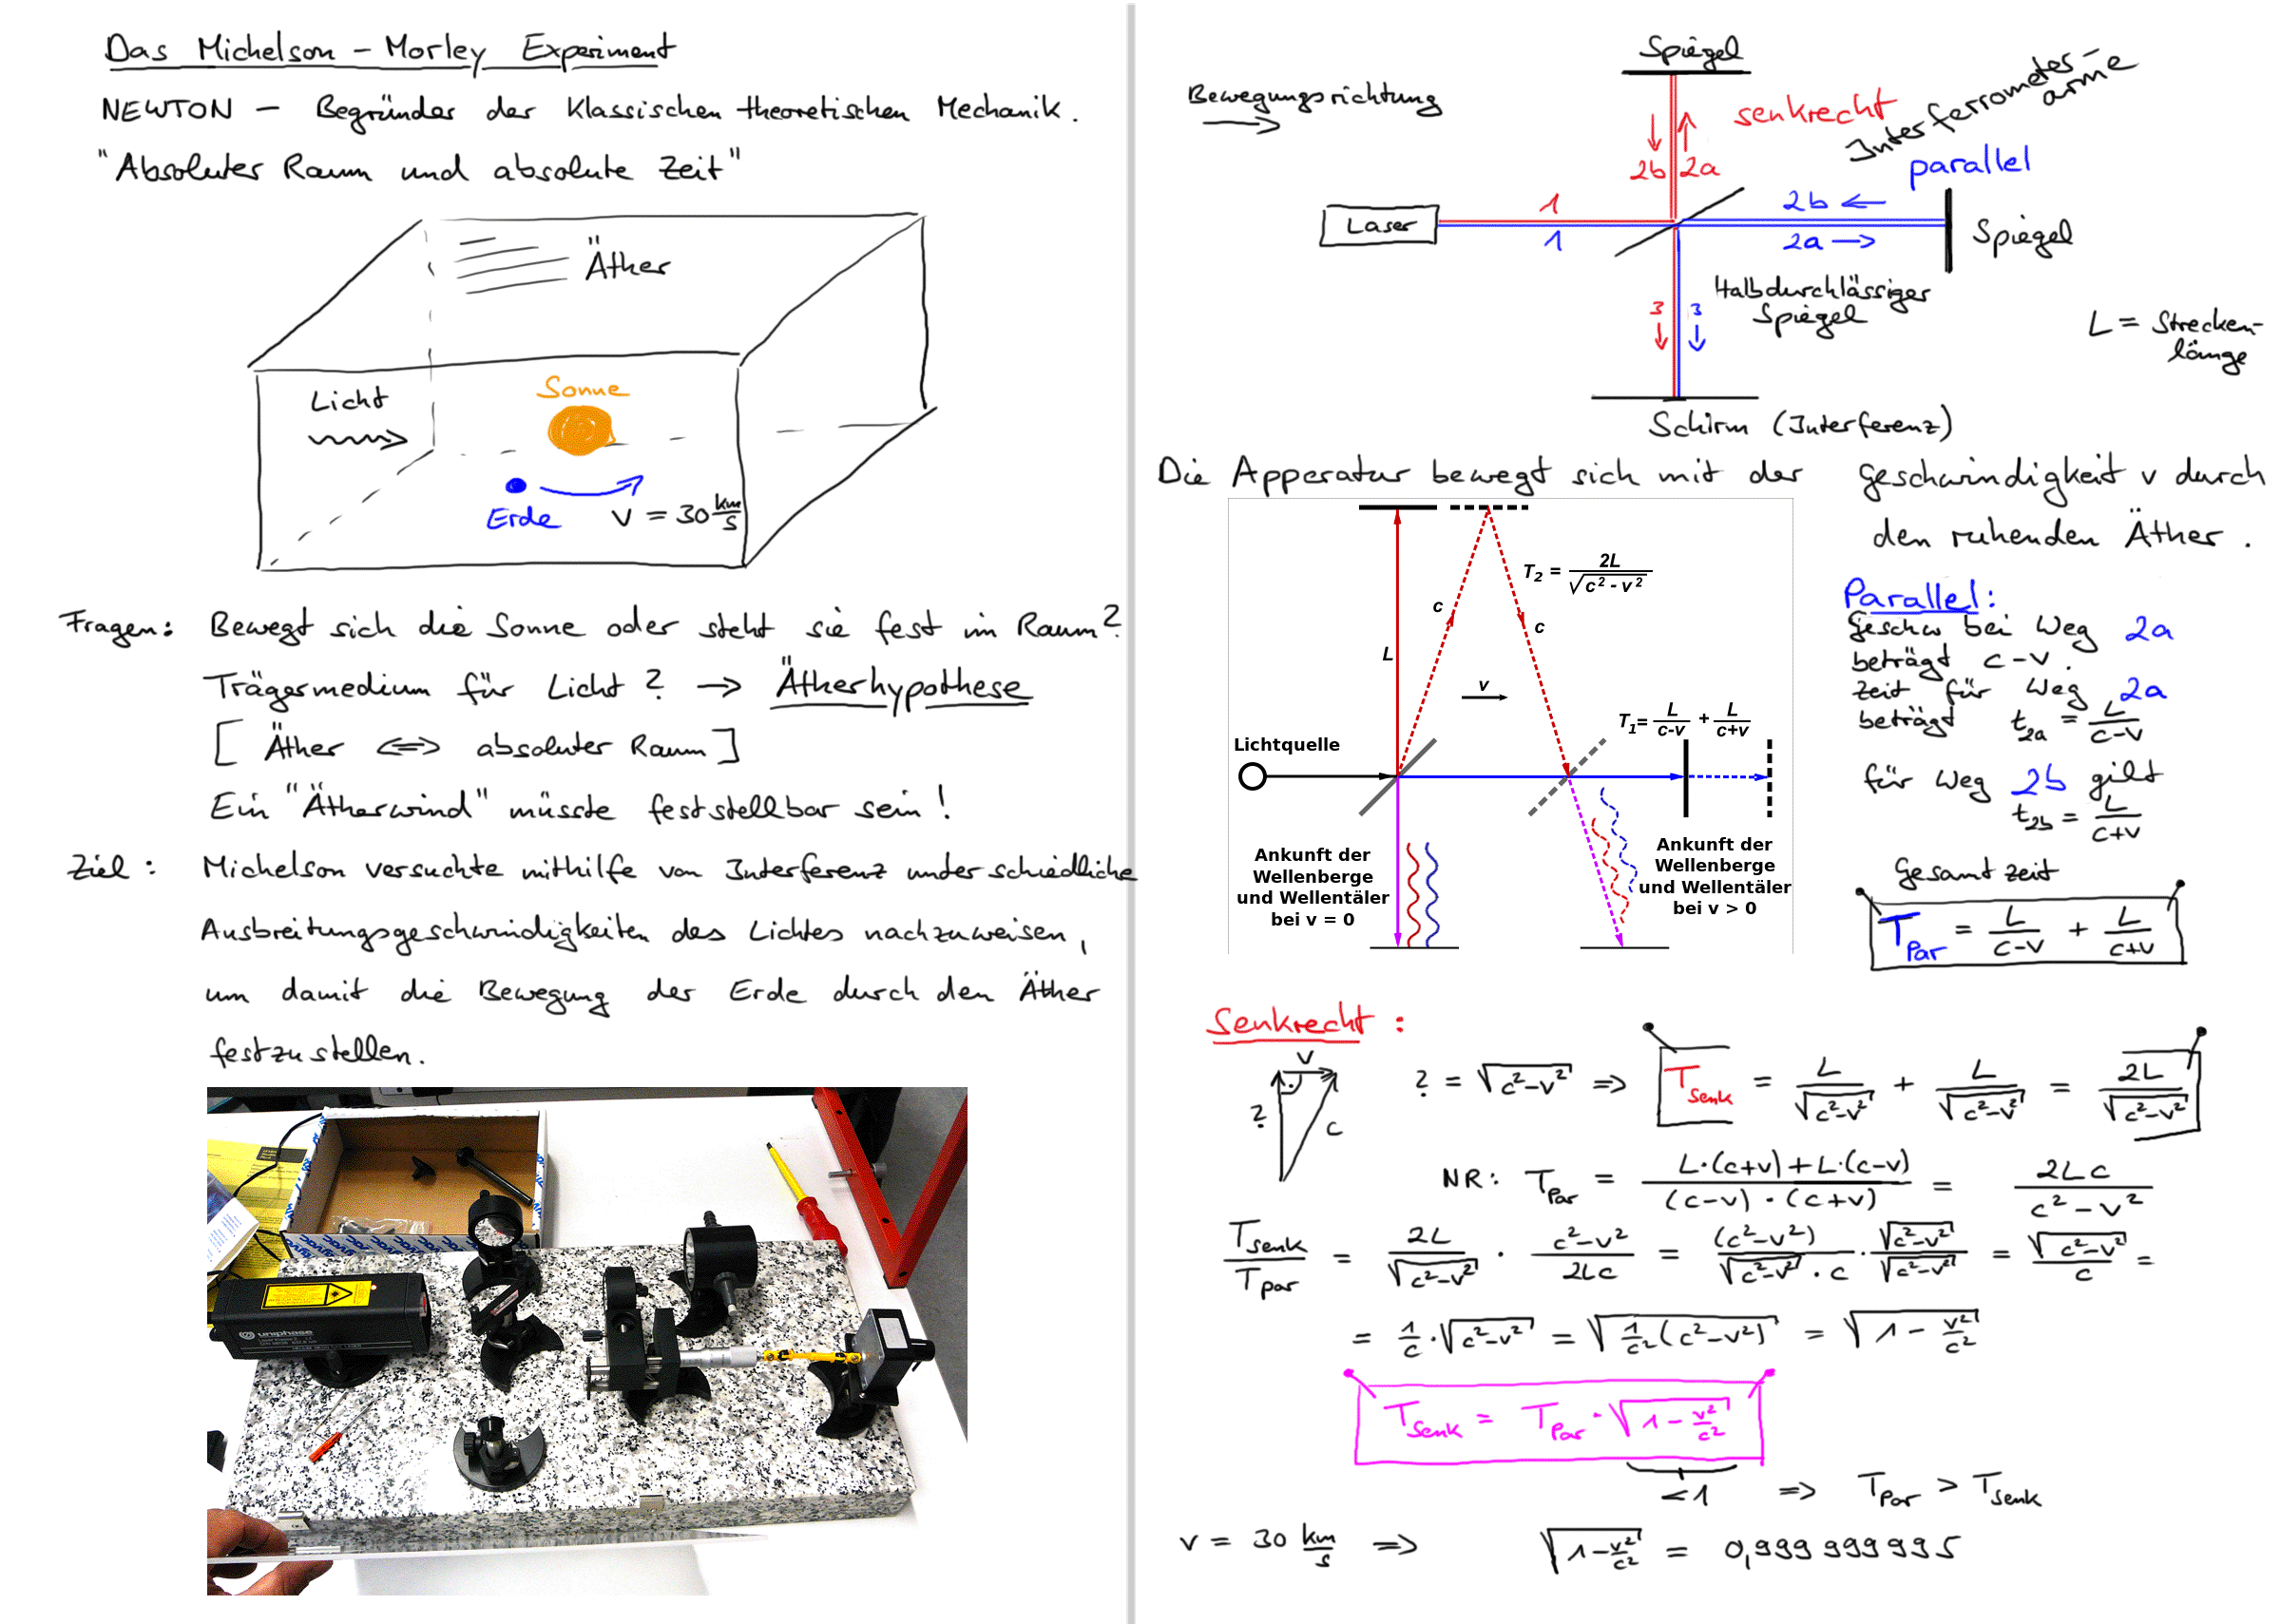 Das Michelson – Morley Experiment
NEWTON – Begründer der klassischen theoretischen Mechanik.
"Absoluter Raum und absolute Zeit"
Äther
Licht
Sonne
Erde
v = 30 km/s
Fragen: Bewegt sich die Sonne oder steht sie fest im Raum?
Trägermedium für Licht? → Ätherhypothese
[Äther ⇔ absoluter Raum]
Ein "Ätherwind" müsste feststellbar sein!
Ziel: Michelson versuchte mithilfe von Interferenz underschiedliche
Ausbreitungsgeschwindigkeiten des Lichtes nachzuweisen,
um damit die Bewegung der Erde durch den Äther
festzustellen.
uniphase
Bewegungsrichtung
Spiegel
senkrecht
Interferrometer-
arme
parallel
2b 2a
Laser
1
1
2b ←
2a →
Spiegel
3 3
Halbdurchlässiger
Spiegel
L = Strecken-
länge
Schirm (Interferenz)
Die Apperatur bewegt sich mit der Geschwindigkeit v durch
den ruhenden Äther.
T₂ = 2L / √(c² - v²)
c
c
L
v
T₁ = L/(c-v) + L/(c+v)
Lichtquelle
Ankunft der
Wellenberge
und Wellentäler
bei v = 0
Ankunft der
Wellenberge
und Wellentäler
bei v > 0
Parallel:
Geschw bei Weg 2a
beträgt c-v.
Zeit für Weg 2a
beträgt t₂ₐ = L/(c-v)
für Weg 2b gilt
t_2b = L/(c+v)
Gesamtzeit
T_Par = L/(c-v) + L/(c+v)
Senkrecht:
v
?
c
? = √(c²-v²) ⇒ T_Senk = L/√(c²-v²) + L/√(c²-v²) = 2L/√(c²-v²)
NR: T_Par = (L·(c+v)+L·(c-v))/((c-v)·(c+v)) = 2Lc/(c²-v²)
T_Senk/T_Par = 2L/√(c²-v²) · (c²-v²)/(2Lc) = (c²-v²)/(√(c²-v²)·c) · √(c²-v²)/√(c²-v²) = √(c²-v²)/c =
= 1/c · √(c²-v²) = √(1/c² (c²-v²)) = √(1 - v²/c²)
T_Senk = T_Par · √(1 - v²/c²)
<1 ⇒ T_Par > T_Senk
v = 30 km/s ⇒ √(1-v²/c²) = 0,999 999 995